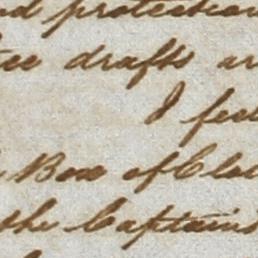 nd protection
ee drafts ar
I feel
Box of Clot
the Captains